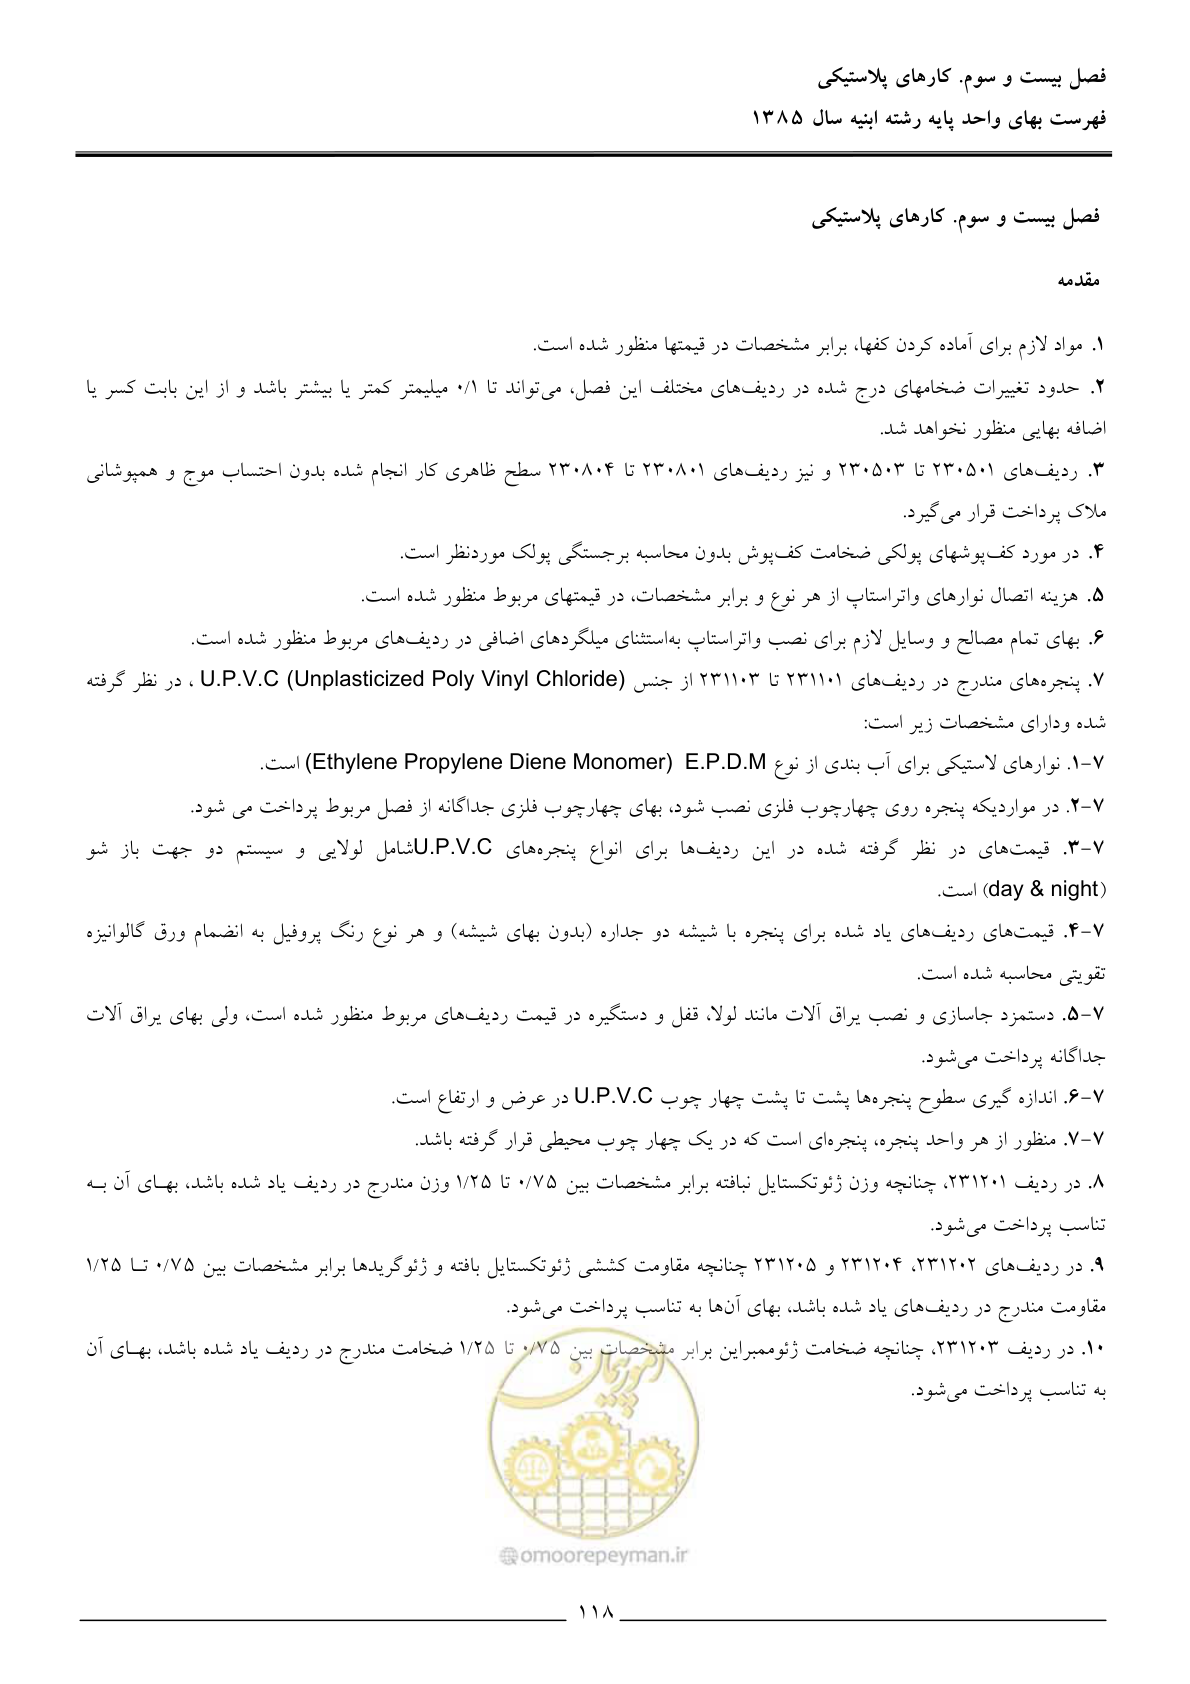 فصل بیست و سوم. کارهای پلاستیکی
فهرست بهای واحد پایه رشته ابنیه سال ۱۳۸۵
فصل بیست و سوم. کارهای پلاستیکی
مقدمه
۱. مواد لازم برای آماده کردن کفها، برابر مشخصات در قیمتها منظور شده است.
۲. حدود تغییرات ضخامهای درج شده در ردیف‌های مختلف این فصل، می‌تواند تا ۰/۱ میلیمتر کمتر یا بیشتر باشد و از این بابت کسر یا
اضافه بهایی منظور نخواهد شد.
۳. ردیف‌های ۲۳۰۵۰۱ تا ۲۳۰۵۰۳ و نیز ردیف‌های ۲۳۰۸۰۱ تا ۲۳۰۸۰۴ سطح ظاهری کار انجام شده بدون احتساب موج و همپوشانی
ملاک پرداخت قرار می‌گیرد.
۴. در مورد کف‌پوشهای پولکی ضخامت کف‌پوش بدون محاسبه برجستگی پولک موردنظر است.
۵. هزینه اتصال نوارهای واتراستاپ از هر نوع و برابر مشخصات، در قیمتهای مربوط منظور شده است.
۶. بهای تمام مصالح و وسایل لازم برای نصب واتراستاپ به‌استثنای میلگردهای اضافی در ردیف‌های مربوط منظور شده است.
۷. پنجره‌های مندرج در ردیف‌های ۲۳۱۱۰۱ تا ۲۳۱۱۰۳ از جنس U.P.V.C (Unplasticized Poly Vinyl Chloride) ، در نظر گرفته
شده ودارای مشخصات زیر است:
۷-۱. نوارهای لاستیکی برای آب بندی از نوع E.P.D.M (Ethylene Propylene Diene Monomer) است.
۷-۲. در مواردیکه پنجره روی چهارچوب فلزی نصب شود، بهای چهارچوب فلزی جداگانه از فصل مربوط پرداخت می شود.
۷-۳. قیمت‌های در نظر گرفته شده در این ردیف‌ها برای انواع پنجره‌های U.P.V.Cشامل لولایی و سیستم دو جهت باز شو
(day & night) است.
۷-۴. قیمت‌های ردیف‌های یاد شده برای پنجره با شیشه دو جداره (بدون بهای شیشه) و هر نوع رنگ پروفیل به انضمام ورق گالوانیزه
تقویتی محاسبه شده است.
۷-۵. دستمزد جاسازی و نصب یراق آلات مانند لولا، قفل و دستگیره در قیمت ردیف‌های مربوط منظور شده است، ولی بهای یراق آلات
جداگانه پرداخت می‌شود.
۷-۶. اندازه گیری سطوح پنجره‌ها پشت تا پشت چهار چوب U.P.V.C در عرض و ارتفاع است.
۷-۷. منظور از هر واحد پنجره، پنجره‌ای است که در یک چهار چوب محیطی قرار گرفته باشد.
۸. در ردیف ۲۳۱۲۰۱، چنانچه وزن ژئوتکستایل نبافته برابر مشخصات بین ۰/۷۵ تا ۱/۲۵ وزن مندرج در ردیف یاد شده باشد، بهـای آن بـه
تناسب پرداخت می‌شود.
۹. در ردیف‌های ۲۳۱۲۰۲، ۲۳۱۲۰۴ و ۲۳۱۲۰۵ چنانچه مقاومت کششی ژئوتکستایل بافته و ژئوگریدها برابر مشخصات بین ۰/۷۵ تـا ۱/۲۵
مقاومت مندرج در ردیف‌های یاد شده باشد، بهای آن‌ها به تناسب پرداخت می‌شود.
۱۰. در ردیف ۲۳۱۲۰۳، چنانچه ضخامت ژئوممبراین برابر مشخصات بین ۰/۷۵ تا ۱/۲۵ ضخامت مندرج در ردیف یاد شده باشد، بهـای آن
به تناسب پرداخت می‌شود.
امور پیمان
@omoorepeyman.ir
۱۱۸